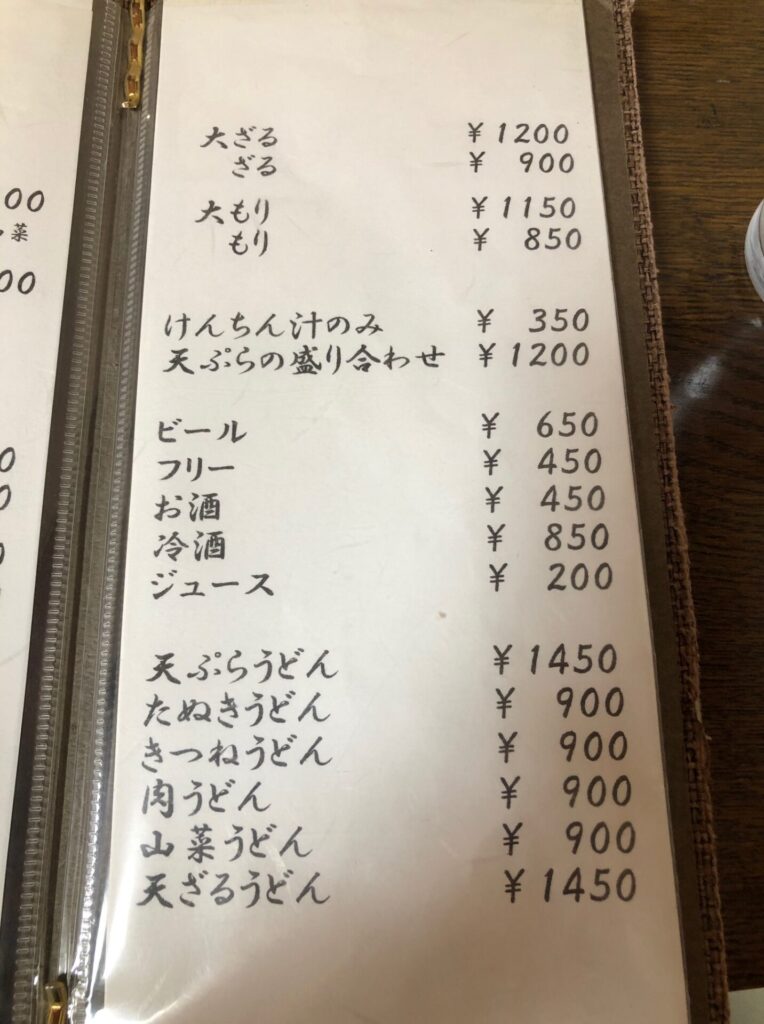 00
菜
00
0
0
0
大ざる ¥1200
ざる ¥ 900
大もり ¥1150
もり ¥ 850
けんちん汁のみ ¥ 350
天ぷらの盛り合わせ ¥1200
ビール ¥ 650
フリー ¥ 450
お酒 ¥ 450
冷酒 ¥ 850
ジュース ¥ 200
天ぷらうどん ¥1450
たぬきうどん ¥ 900
きつねうどん ¥ 900
肉うどん ¥ 900
山菜うどん ¥ 900
天ざるうどん ¥1450